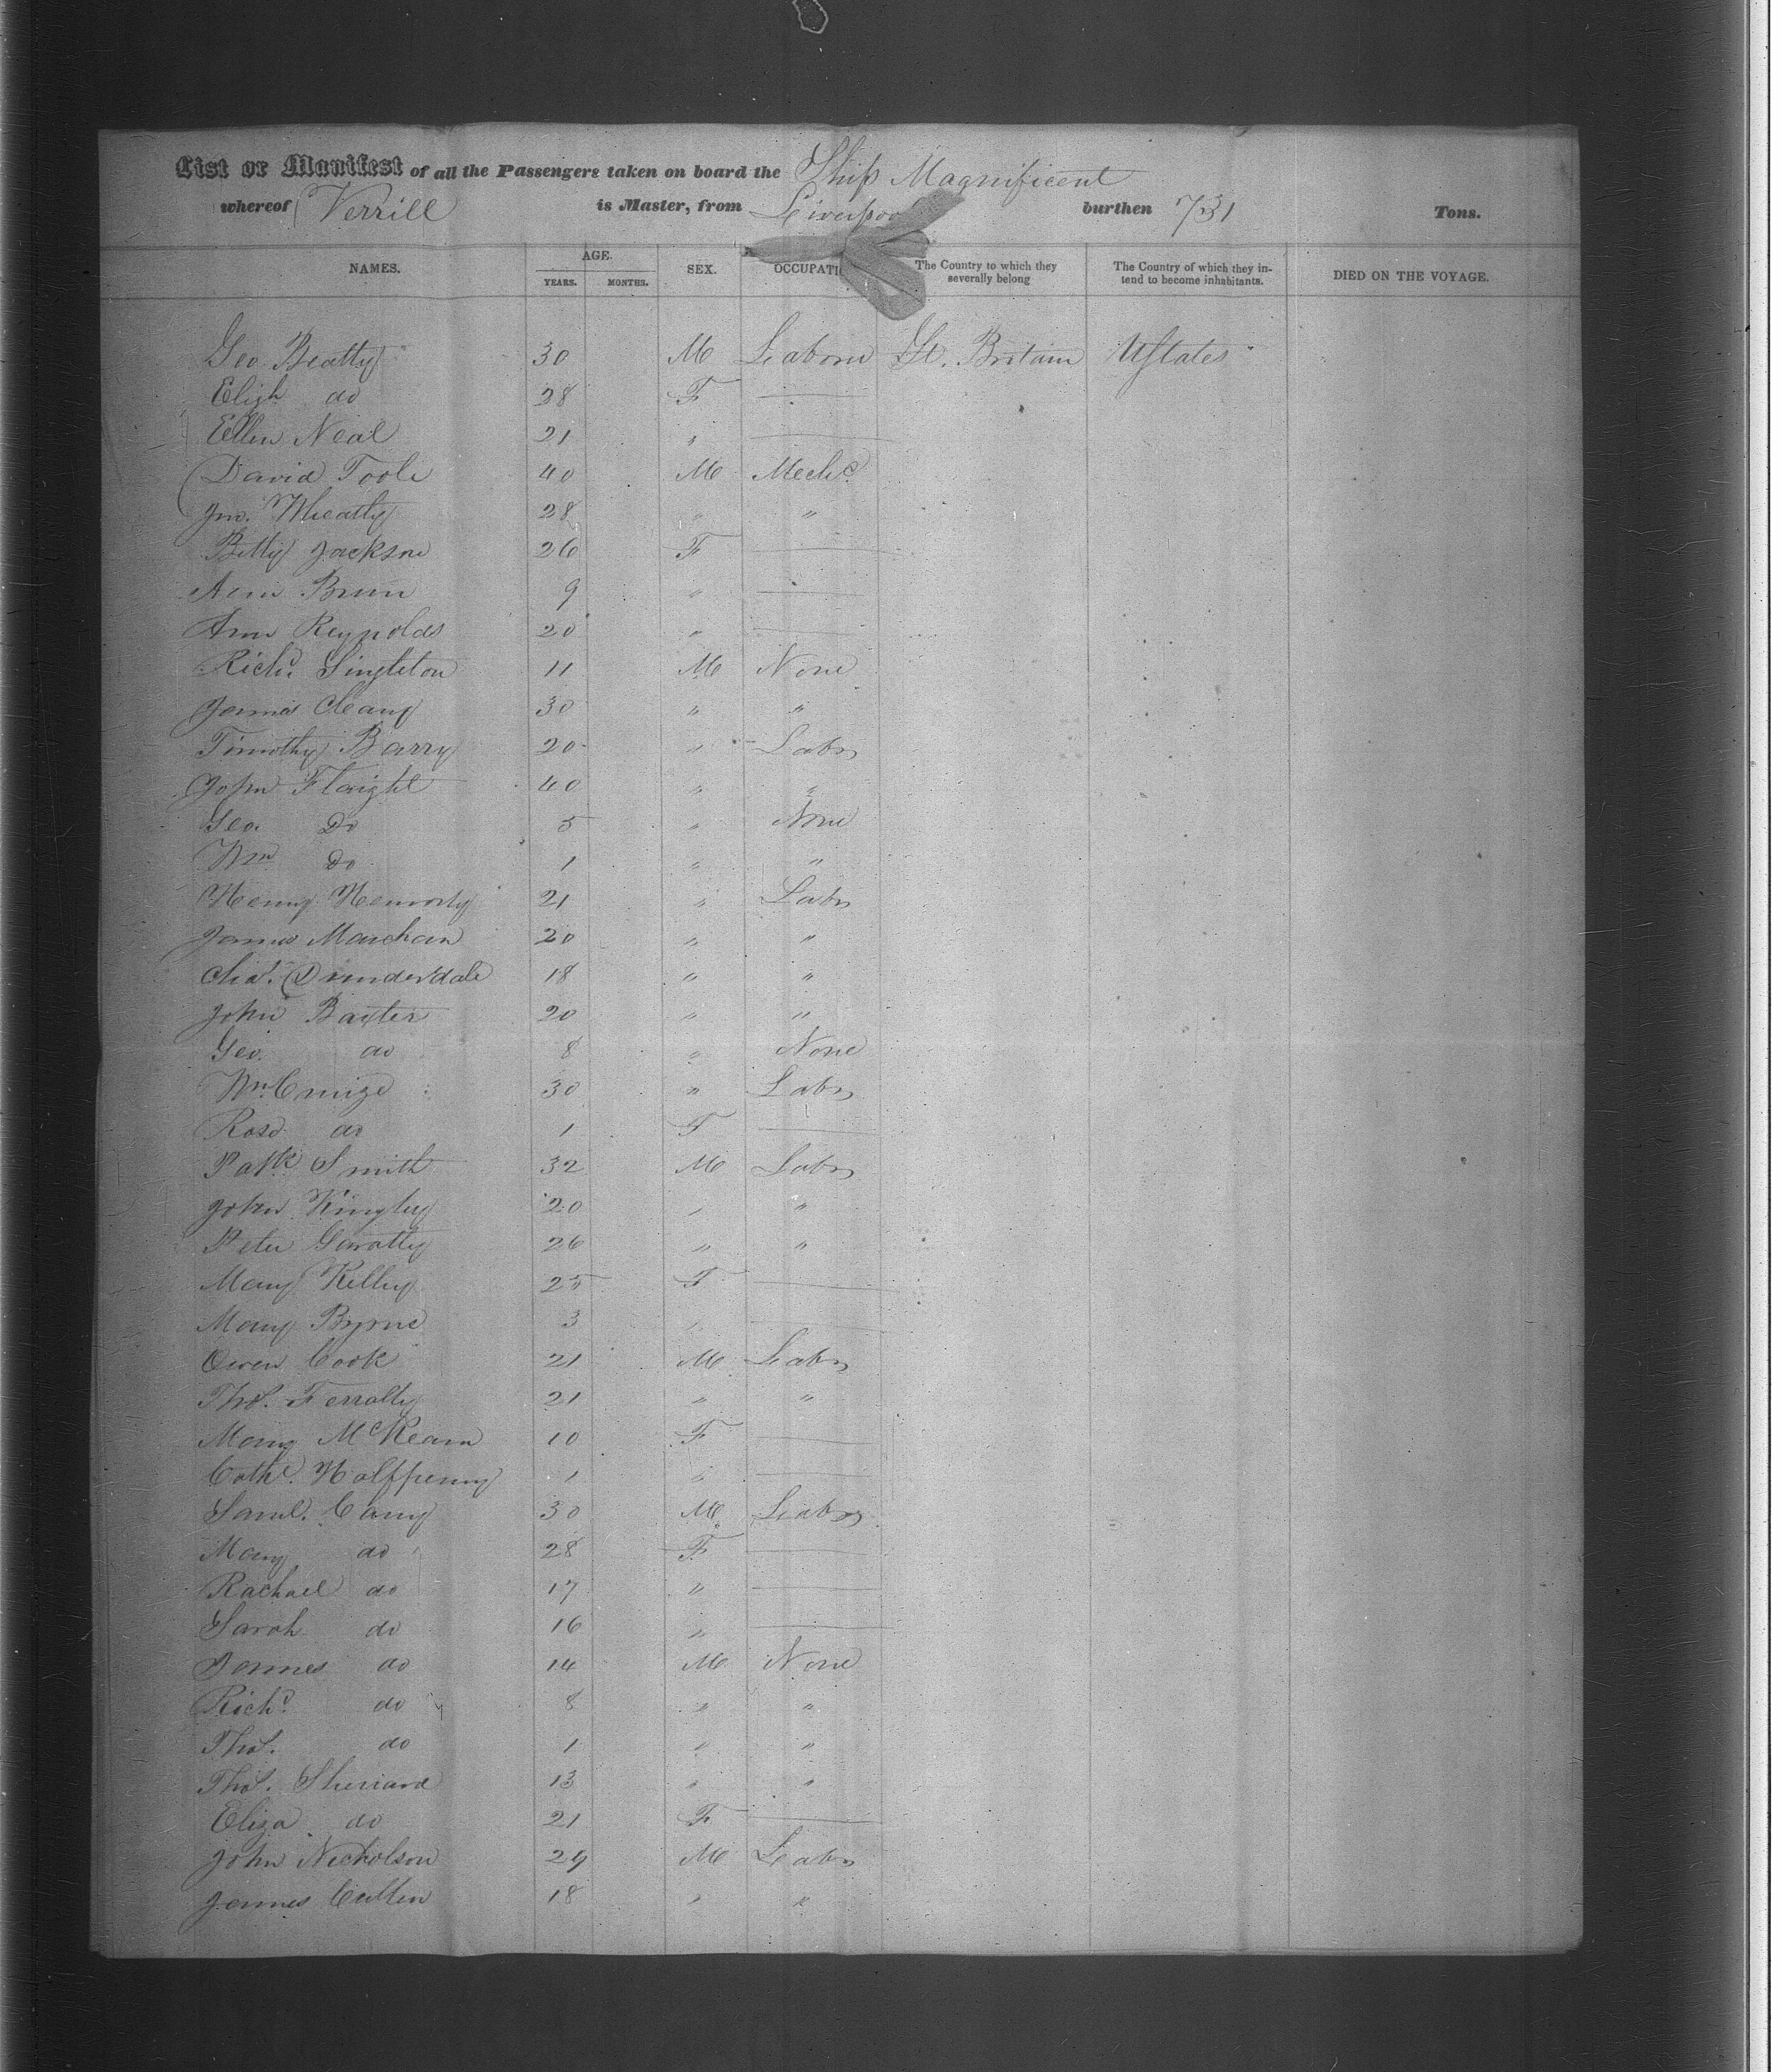 List or Manifest of all the Passengers taken on board the Ship Magnificent
whereof Verrill is Master, from Liverpool burthen 731 Tons.
NAMES. AGE. YEARS. MONTHS. SEX. OCCUPATI The Country to which they severally belong The Country of which they intend to become inhabitants. DIED ON THE VOYAGE.
Geo Beatty 30 M Laborer Gt. Britain UStates
Elizh do 28 F
Ellen Neal 21 "
David Toole 40 M Mechc
Jno. Wheatly 28 " "
Betty Jackson 26 F
Ann 9 "
Ann Reynolds 20 "
Richd. Singleton 11 M None
James Cleary 30 " "
Timothy Barry 20 " Labr
John 40 " "
Geo. Do 5 " None
Wm Do 1 " "
Henry 21 " Labr
James 20 " "
Chas. Dunderdale 18 " "
John Baxter 20 " "
Geo. do 8 " None
Wm. 30 " Labr
Rose do 1 F
Patk Smith 32 M Labr
John Kingley 20 " "
Peter Garatty 26 " "
Mary Kelley 25 F
Mary Byrne 3 "
Owen Cook 21 M Labr
Thos. Ferralty 21 " "
Mary McKearn 10 F
Cathe. Halfpenny 1 "
Saml. Cany 30 M Labr
Mary do 28 F
Rachael do 17 "
Sarah do 16 "
James do 14 M None
Richd do 8 " "
Thos. do 1 " "
Thos. Sherrard 13 " "
Eliza do 21 F
John Nicholson 29 M Labr
James Cullen 18 " "